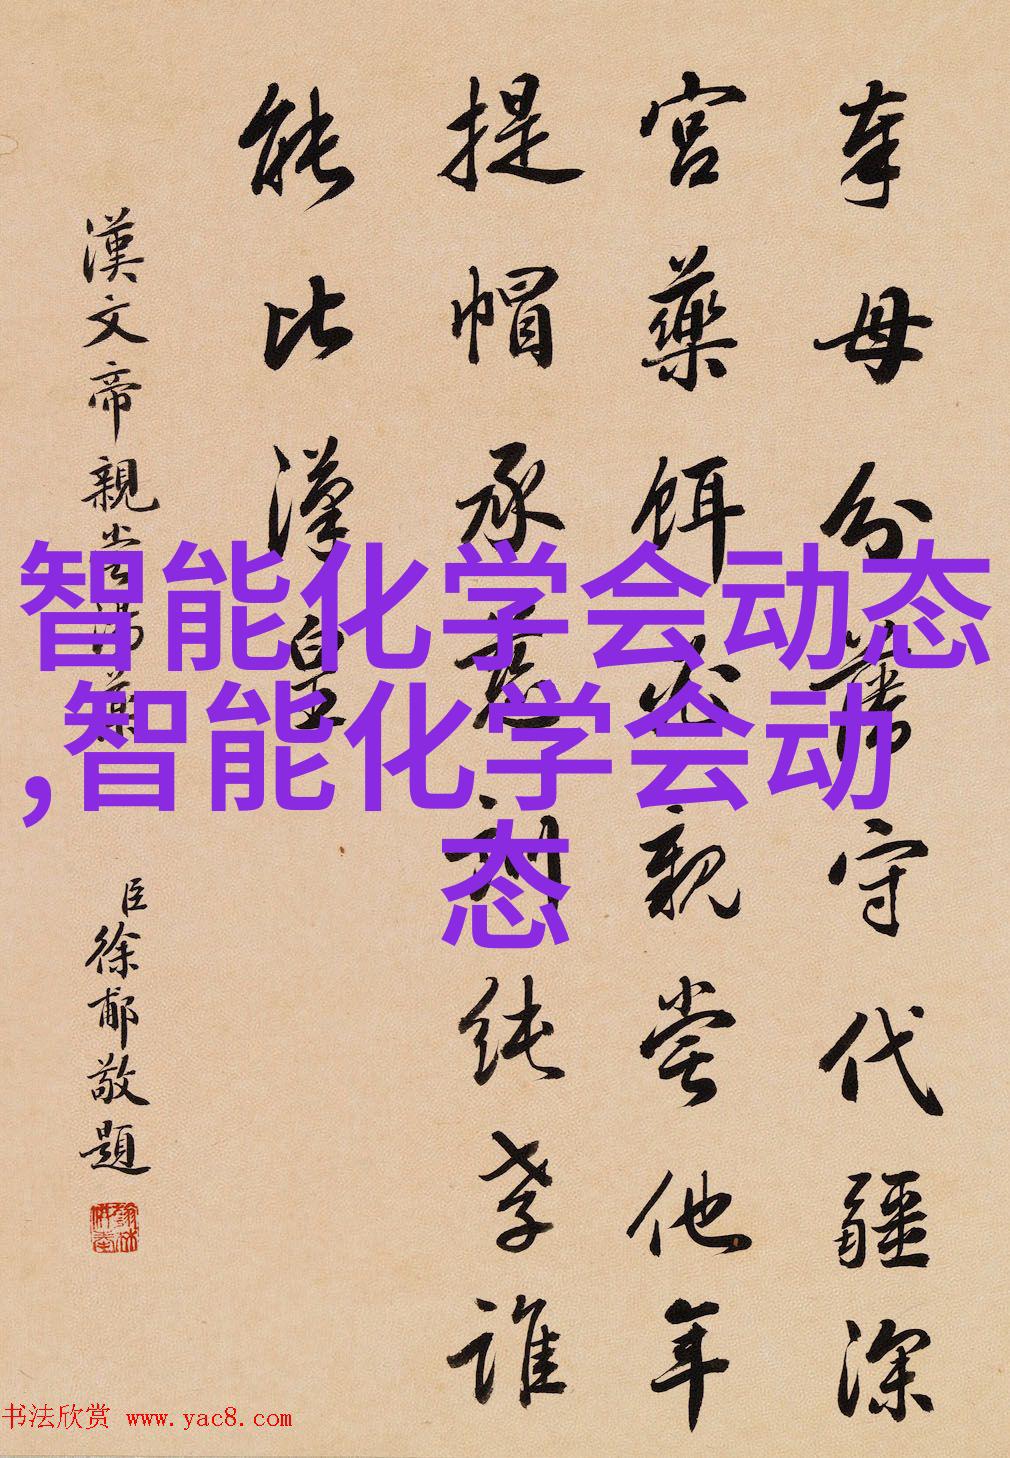 奉母分藩守代疆深
宮藥餌必親嘗他年
提帽承慈訓純孝誰
能比漢皇
漢文帝親嘗湯藥
臣徐郙敬題
智能化学会动态
,智能化学会动
态
书法欣赏 www.yac8.com